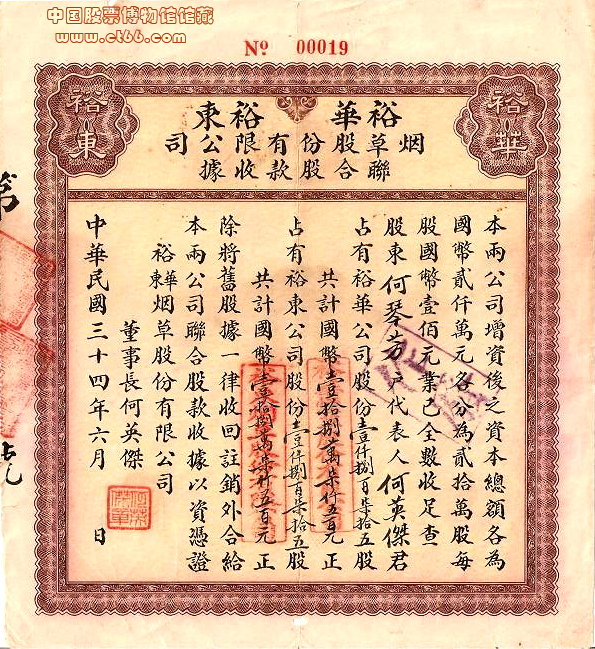 中国股票博物馆馆藏
www.ct66.com
No 00019
裕華 裕東
烟草股份有限公司
聯合股款收據
裕華
裕東
本兩公司增資後之資本總額各為
國幣貳仟萬元各分為貳拾萬股每
股國幣壹佰元業已全數收足查
股東何琴芳户代表人何英傑君
占有裕華公司股份壹仟捌百柒拾五股
共計國幣壹拾捌萬柒仟五百元正
占有裕東公司股份壹仟捌百柒拾五股
共計國幣壹拾捌萬柒仟五百元正
除將舊股據一律收回註銷外合給
本兩公司聯合股款收據以資憑證
裕華東烟草股份有限公司
董事長何英傑
中華民國三十四年六月 日
第